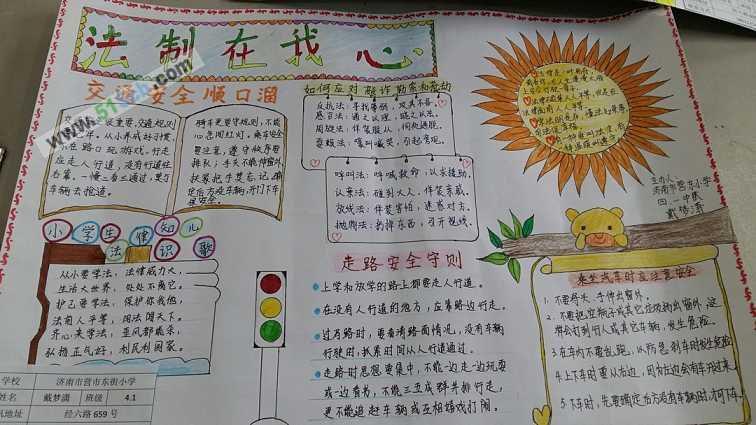 法制在我心
www.51
.com
交通安全顺口溜
如何应对敲诈勒索和
反抗法：寻找带弱，攻其不备。
感召法：通之以理，晓之以法。
周旋法：佯装服从，伺处逃脱。
要挟法：警叫喊哭，引起旁观。
呼叫法：呼喊救命，以求援助。
认亲法：碰到大人，佯装亲戚。
放线法：佯装害怕，迷惑对方。
抛物法：扔掉东西，引开视线。
重要，交通规则
年，从小养成好习惯，
在路口玩游戏。行走
应走人行道，没有行道生
右靠。一慢二看三通过，莫与
车辆去抢道。
骑车更要守规则，不能
心急闯红灯。乘车安全
要注意，遵守秩序要
排队；手头不能伸窗外，
扶紧把手莫忘记，确
定后方没车辆，开门下车
保安全。
主办人
济南市营东小学
四.一中队
戴梦潇
小学生法律知识儿歌
从小要学法，法律威力大，
生活大世界，处处不离它。
护己要学法，保护你我他，
法前人平等，闯法闯天下。
齐心来学法，歪风都能杀，
弘扬正气好，利民利国家。
走路安全守则
上学和放学的路上都要走人行道。
在没有人行道的地方，应靠路边行走。
过马路时，要看清路面情况，没有车辆
行驶时，抓紧时间从人行道通过。
走路时思想要集中，不能一边走一边玩耍
或一边看书，不能三五成群并排行走，
更不能追赶车辆或互相嬉戏打闹。
乘坐汽车时应注意安全
1.不要将头、手伸出窗外。
2.不要把空瓶子或其它垃圾扔出窗外，这
样会打到行人或其它车辆，发生危险。
3.在车内不要乱跑，以防急刹车时发生危险
4.上下车时要从右边，因为左边会有车开过来。
5.下车时，先要确定后方没有车辆时，才可下车。
学校 济南市营市东街小学
姓名 戴梦潇 班级 4.1
地址 经六路 659 号